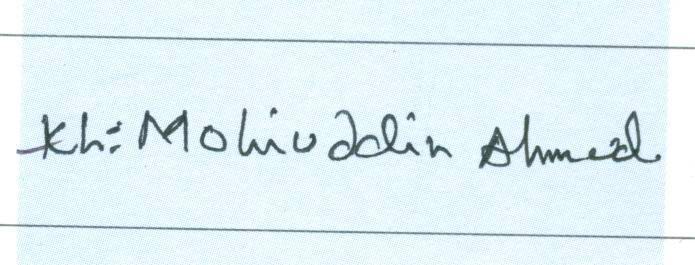 Kh: Mohiuddin Ahmed